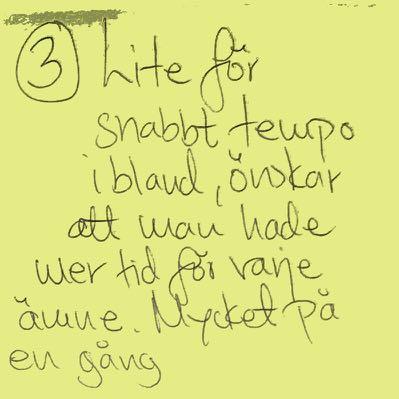 3 Lite för
snabbt tempo
ibland, önskar
att man hade
mer tid för varje
ämne. Mycket på
en gång